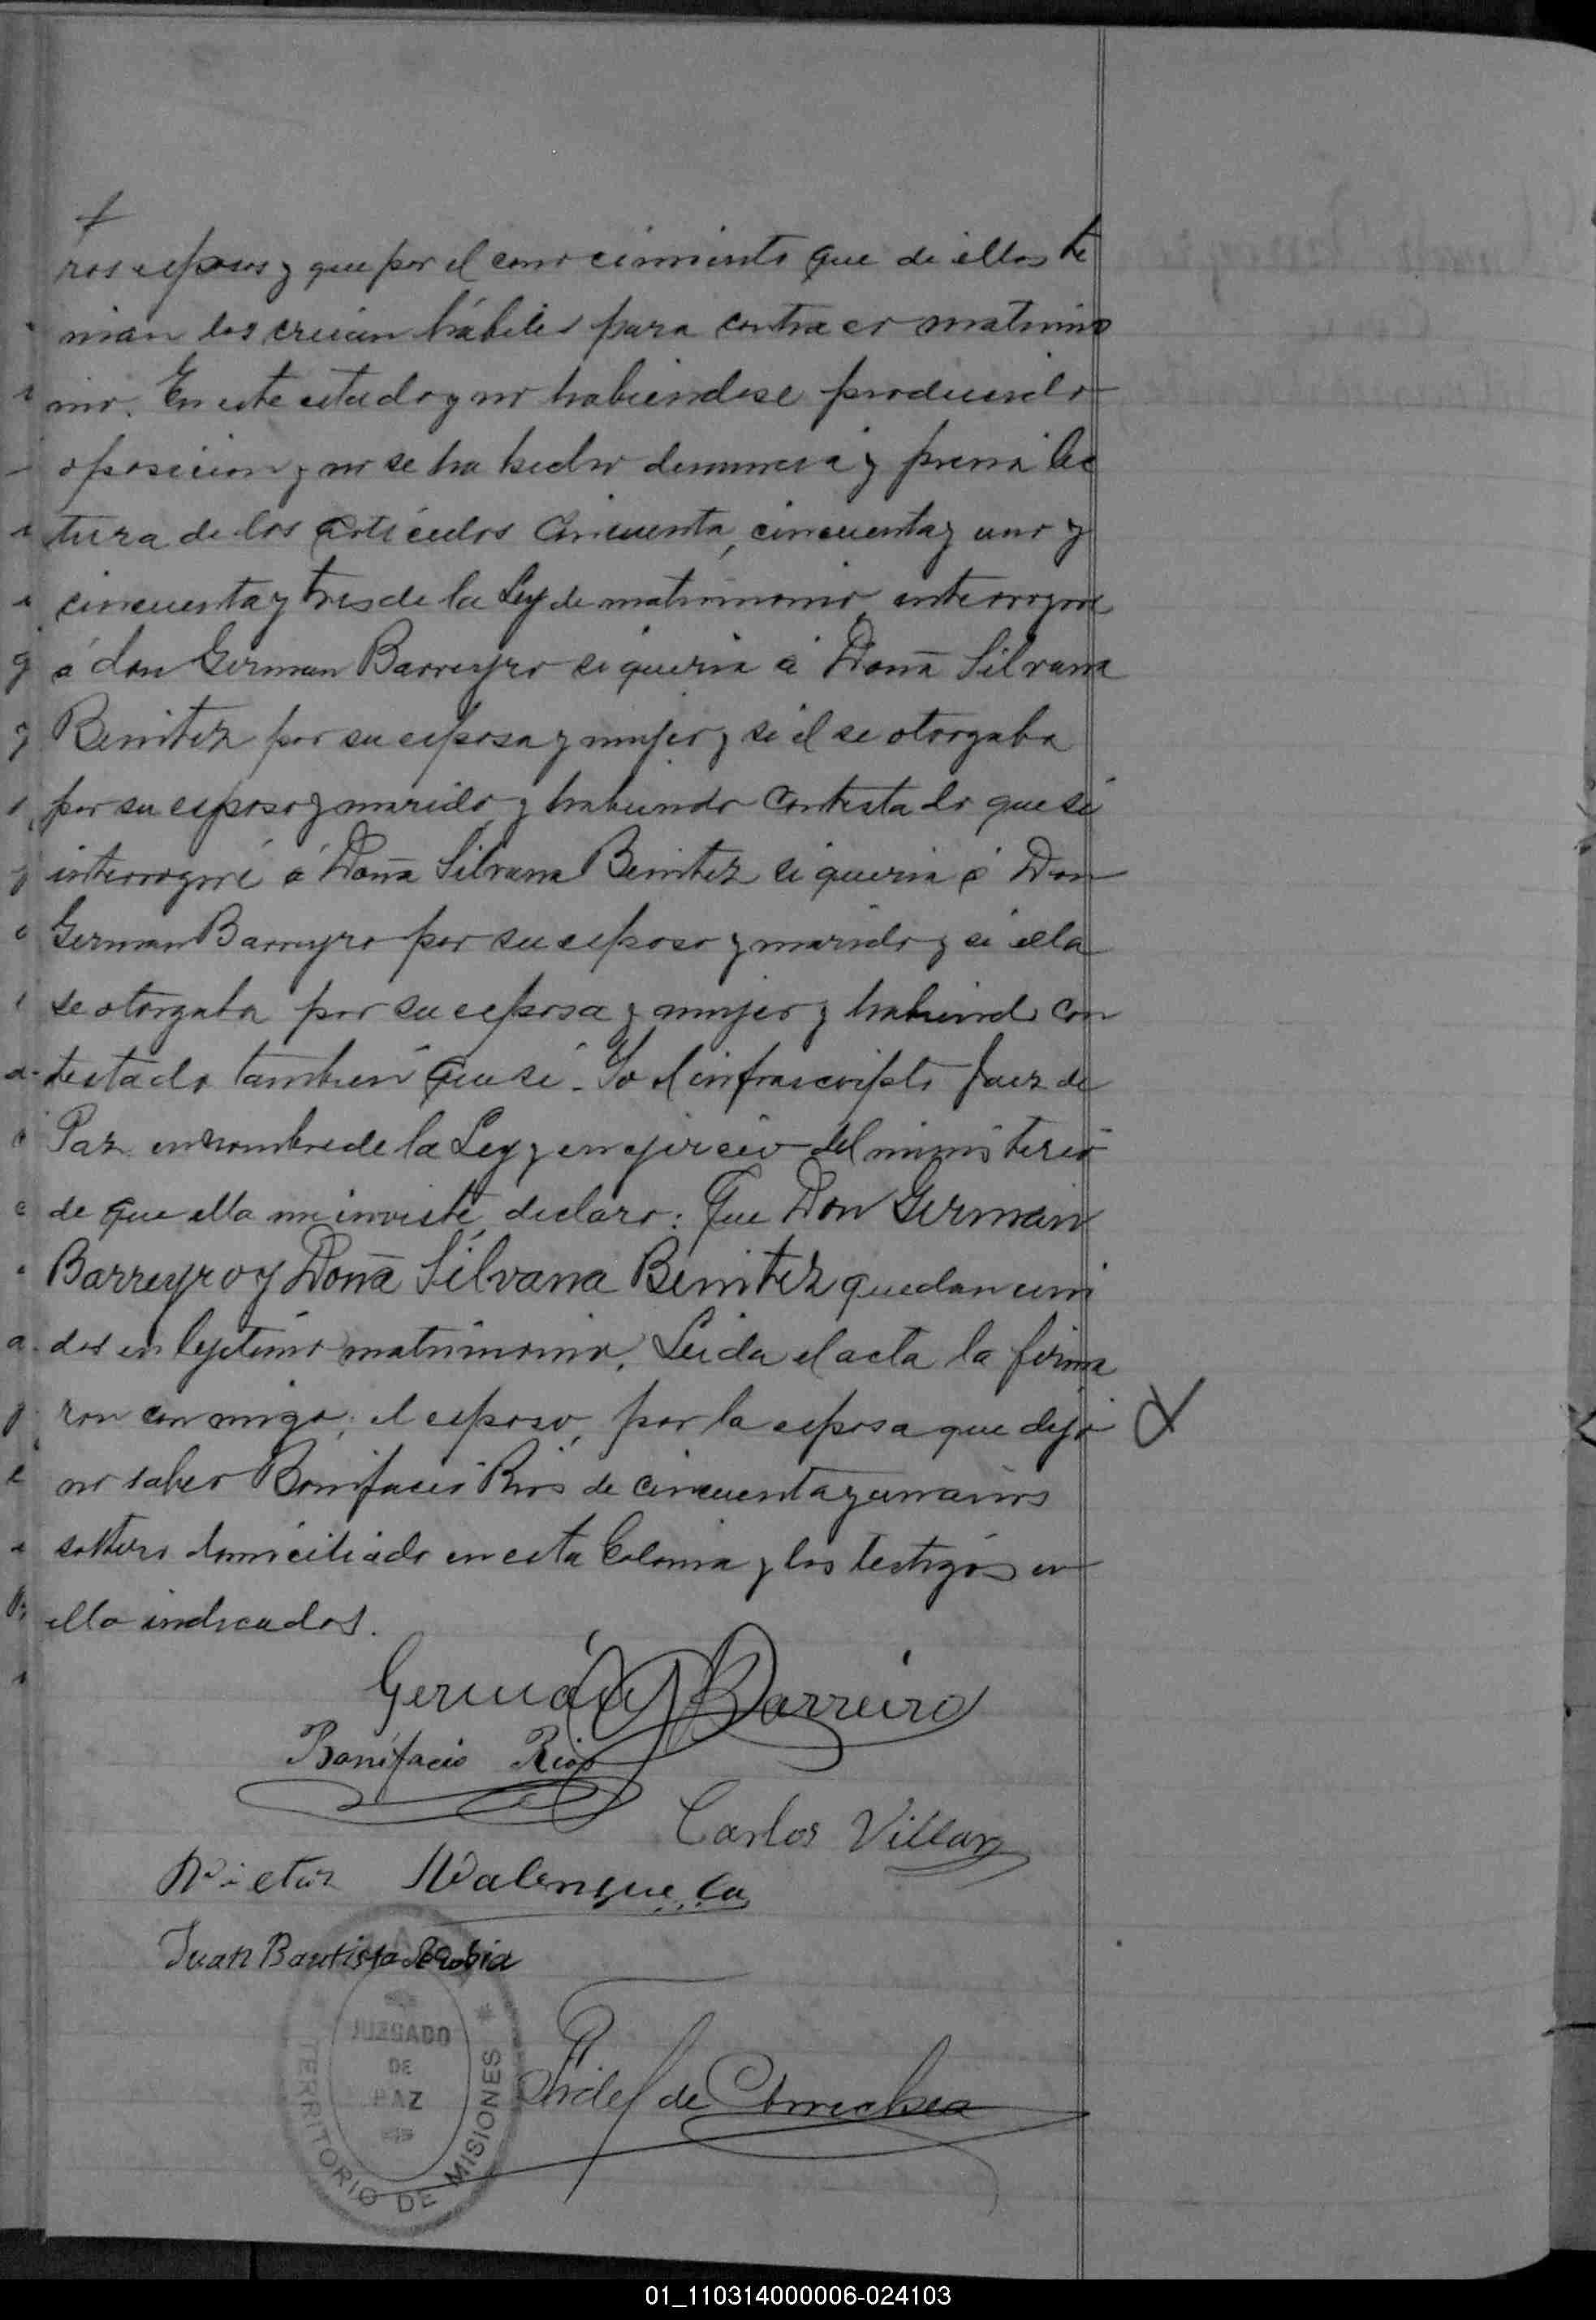 ros esposos y que por el conocimiento que de ellos te
nian los creian hábiles para contraer matrimo
nio. En este estado y no habiendose producido
oposicion y no se ha hecho denuncia y previa lec
tura de los artículos cincuenta, cincuenta y uno y
cincuenta y tres de la Ley de matrimonio interrogué
á don German Barreyro si queria á Doña Silvana
Benitez por su esposa y mujer y si el se otorgaba
por su esposo y marido y habiendo contestado que si
interrogué á Doña Silvana Benitez si queria á Don
German Barreyro por su esposo y marido y si ella
se otorgaba por su esposa y mujer y habiendo con
testado tambien que si. Yo el infrascripto Juez de
Paz en nombre de la Ley y en ejercicio del ministerio
de que ella me inviste, declaro: Que Don German
Barreyro y Doña Silvana Benitez quedan uni
dos en legitimo matrimonio. Leida el acta la firma
ron con migo, el esposo, por la esposa que dijo
no saber Bonifacio Rios de cincuenta y un años
soltero domiciliado en esta Colonia y los testigos en
ella indicados.
Germán Barreiro
Bonifacio Rios
Carlos Villar
Victor Valenzuela
Juan Bautista
JUZGADO
DE
PAZ
TERRITORIO DE MISIONES
Fidel de
01_110314000006-024103